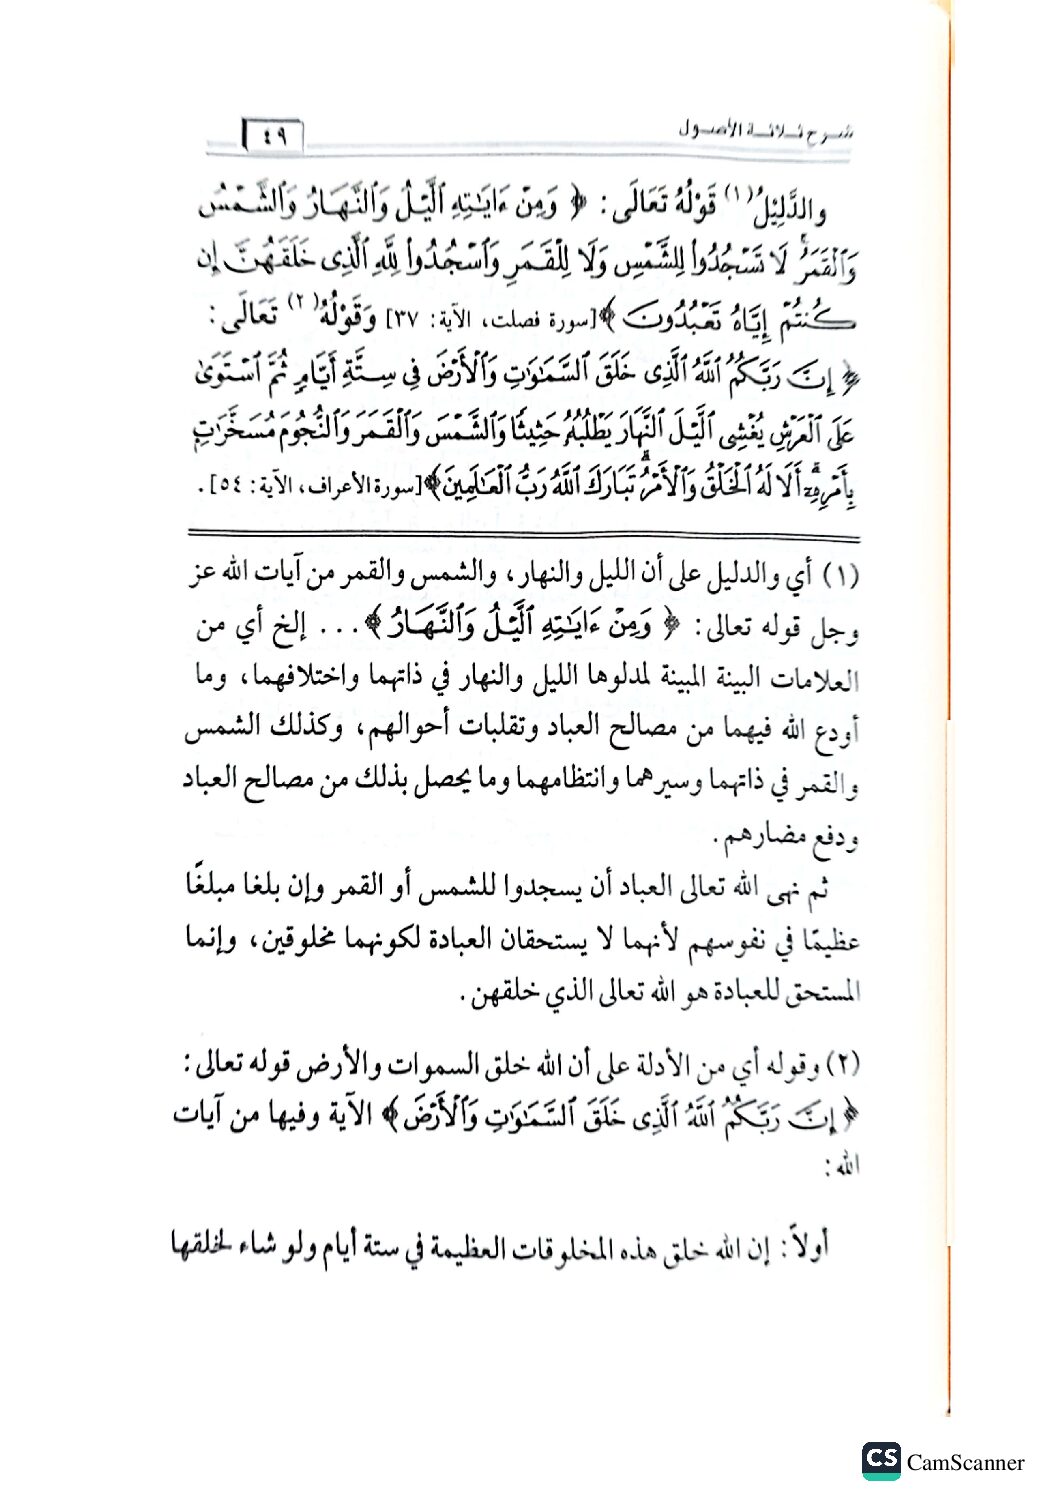 شرح ثلاثة الأصول
٤٩
والدَّلِيْلُ(١) قَوْلُهُ تَعَالَى: ﴿ وَمِنْ ءَايَٰتِهِ ٱلَّيْلُ وَٱلنَّهَارُ وَٱلشَّمْسُ
وَٱلْقَمَرُ ۚ لَا تَسْجُدُوا۟ لِلشَّمْسِ وَلَا لِلْقَمَرِ وَٱسْجُدُوا۟ لِلَّهِ ٱلَّذِى خَلَقَهُنَّ إِن
كُنتُمْ إِيَّاهُ تَعْبُدُونَ ﴾[سورة فصلت، الآية: ٣٧] وَقَوْلُهُ(٢) تَعَالَى:
﴿ إِنَّ رَبَّكُمُ ٱللَّهُ ٱلَّذِى خَلَقَ ٱلسَّمَٰوَٰتِ وَٱلْأَرْضَ فِى سِتَّةِ أَيَّامٍ ثُمَّ ٱسْتَوَىٰ
عَلَى ٱلْعَرْشِ يُغْشِى ٱلَّيْلَ ٱلنَّهَارَ يَطْلُبُهُۥ حَثِيثًا وَٱلشَّمْسَ وَٱلْقَمَرَ وَٱلنُّجُومَ مُسَخَّرَٰتٍۭ
بِأَمْرِهِۦٓ ۗ أَلَا لَهُ ٱلْخَلْقُ وَٱلْأَمْرُ ۗ تَبَارَكَ ٱللَّهُ رَبُّ ٱلْعَٰلَمِينَ﴾[سورة الأعراف، الآية: ٥٤].
(١) أي والدليل على أن الليل والنهار، والشمس والقمر من آيات الله عز
وجل قوله تعالى: ﴿ وَمِنْ ءَايَٰتِهِ ٱلَّيْلُ وَٱلنَّهَارُ ﴾... إلخ أي من
العلامات البينة المبينة لمدلولها الليل والنهار في ذاتهما واختلافهما، وما
أودع الله فيهما من مصالح العباد وتقلبات أحوالهم، وكذلك الشمس
والقمر في ذاتهما وسيرهما وانتظامهما وما يحصل بذلك من مصالح العباد
ودفع مضارهم.
ثم نهى الله تعالى العباد أن يسجدوا للشمس أو القمر وإن بلغا مبلغًا
عظيمًا في نفوسهم لأنهما لا يستحقان العبادة لكونهما مخلوقين، وإنما
المستحق للعبادة هو الله تعالى الذي خلقهن.
(٢) وقوله أي من الأدلة على أن الله خلق السموات والأرض قوله تعالى:
﴿ إِنَّ رَبَّكُمُ ٱللَّهُ ٱلَّذِى خَلَقَ ٱلسَّمَٰوَٰتِ وَٱلْأَرْضَ ﴾ الآية وفيها من آيات
الله:
أولاً: إن الله خلق هذه المخلوقات العظيمة في ستة أيام ولو شاء لخلقها
CS CamScanner